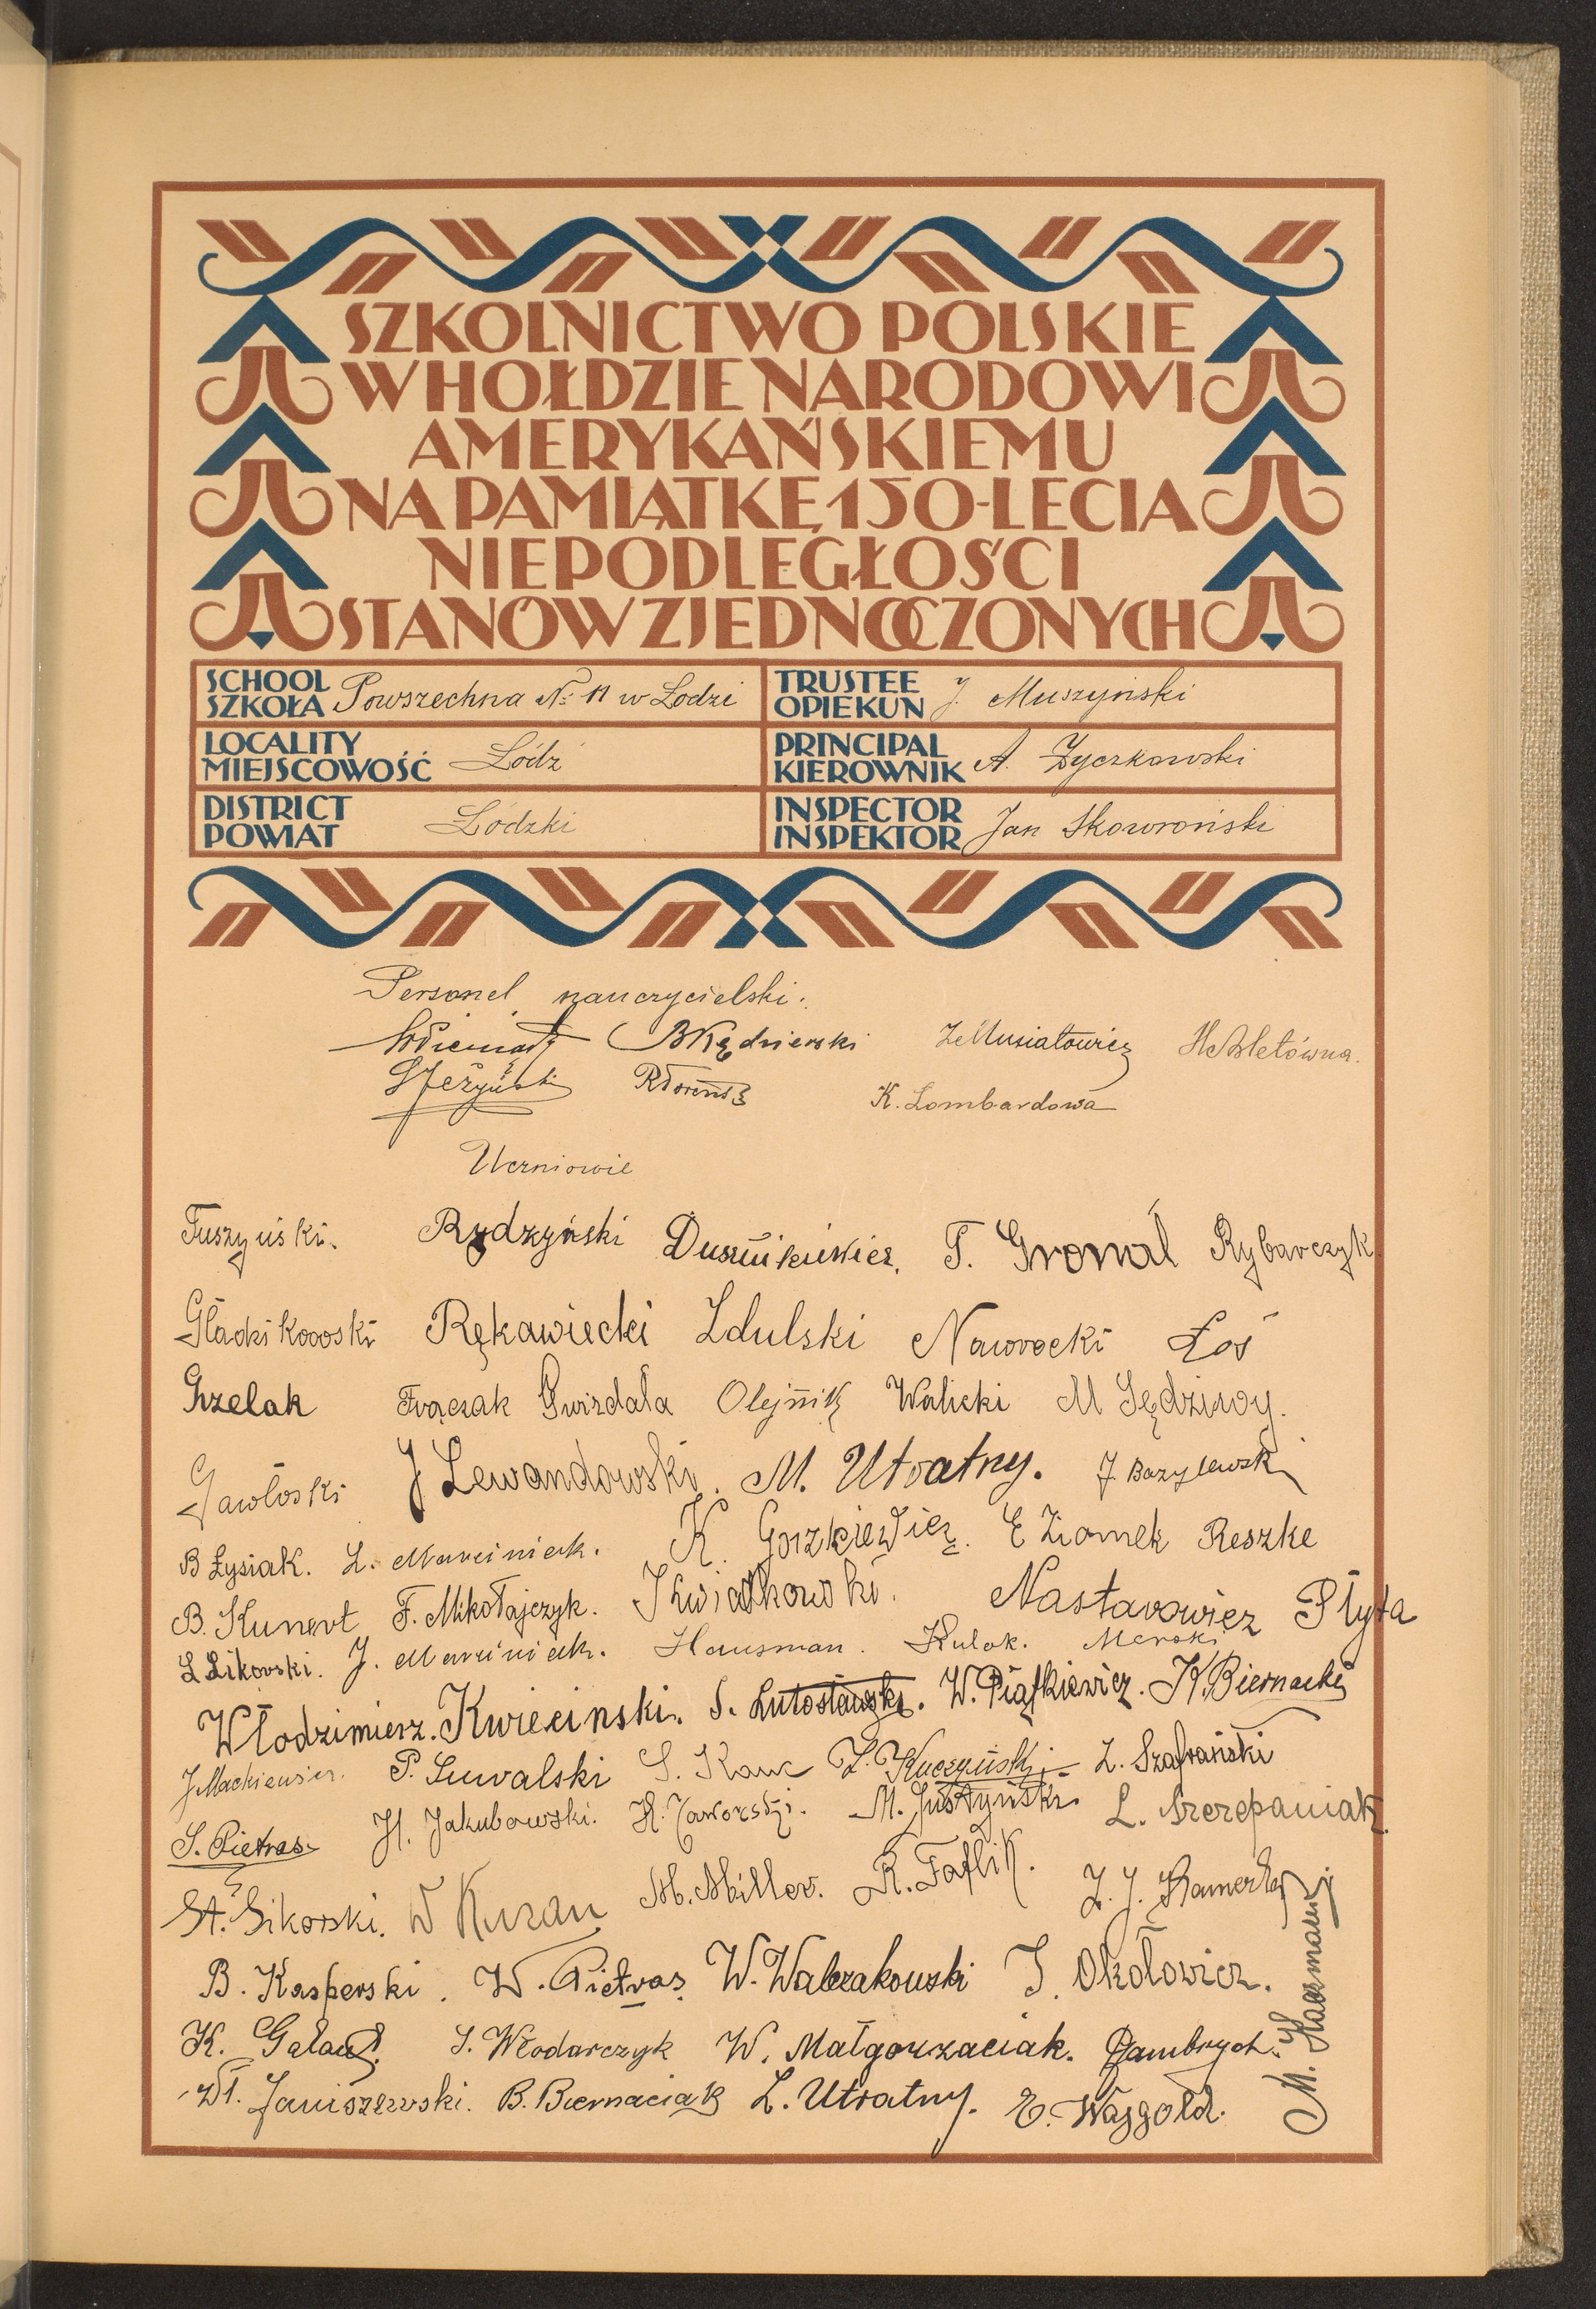 SZKOLNICTWO POLSKIE
W HOŁDZIE NARODOWI
AMERYKAŃSKIEMU
NA PAMIĄTKĘ 150-LECIA
NIEPODLEGŁOŚCI
STANÓW ZJEDNOCZONYCH
SCHOOL
SZKOŁA Powszechna № 11 w Łodzi
TRUSTEE
OPIEKUN J. Muszyński
LOCALITY
MIEJSCOWOŚĆ Łódź
PRINCIPAL
KIEROWNIK A. Życzkowski
DISTRICT
POWIAT Łódzki
INSPECTOR
INSPEKTOR Jan Skowroński
Personel nauczycielski:
BKędzierski ZMusiałowicz
K. Lombardowa
Uczniowie
Tuszyński. Rydzyński T. Gromal Rybarczyk
Rękawiecki Zdulski Nawrocki Łoś
Grzelak Frączak Gwizdała Olejnik Walicki M Sędziwoy.
Gawłoski J Lewandowski. M. Utratny. J. Bazylewski
B Łysiak. Z. Marciniak. K. Gorzkiewicz. E Ziomek Reszke
B. Kunert F. Mikołajczyk. J Kwiatkowski. Nastarowicz Płyta
L Likovski. J. Marciniak. Hausman. Kulak. Merski
Włodzimierz. Kwieciński. S. Lutosławski. W. Piątkiewicz. K. Biernacki
J Mackiewicz. P. Suwalski S. Kanc Z. Kuczyński. Z. Szafrański
S. Pietras H. Jakubowski. H. Jaworski. M. Justyński L. Szczepaniak
St. Sikorski. W Kuran M. Miller. R. Taflik.
B. Kasperski. W. Pietras W. Walczakowski J. Okołowicz.
K. Galant S. Włodarczyk W. Małgorzaciak. Dambrych.
Wł. Janiszewski. B. Biernaciak Z. Utratny. E. Wajgold.
M. Kaczmarny